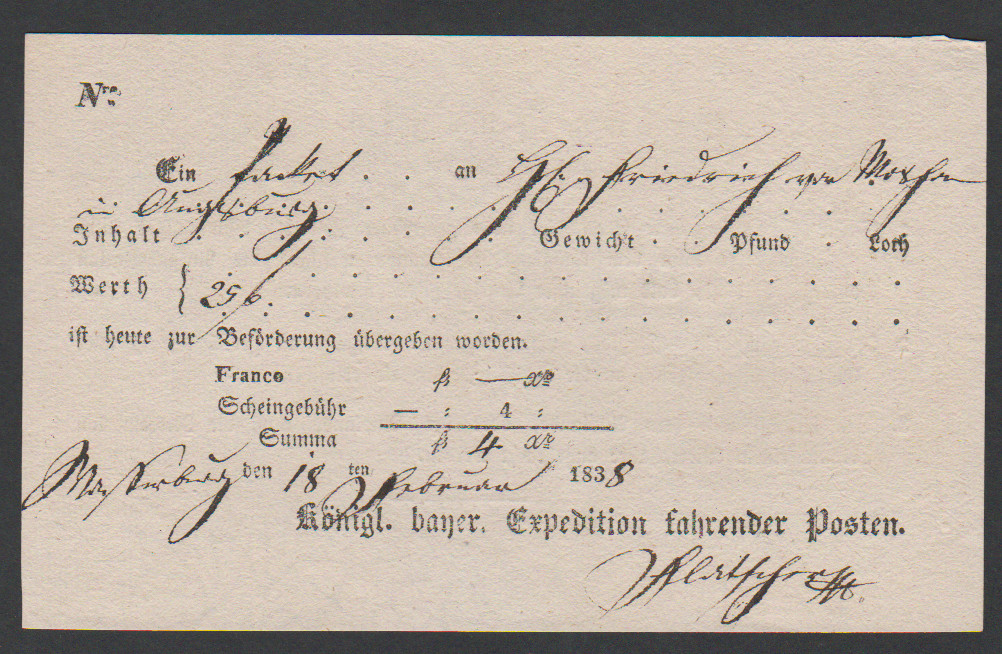 Nro.
Ein Packet . . an Friedrich von
in Augsburg
Inhalt . . . . . . . Gewicht . . Pfund . Loth
Werth { 25 f.
ist heute zur Beförderung übergeben worden.
Franco fl — xr
Scheingebühr — : 4 :
Summa fl 4 xr
Wasserburg den 18 ten Februar 1838
Königl. bayer. Expedition fahrender Posten.